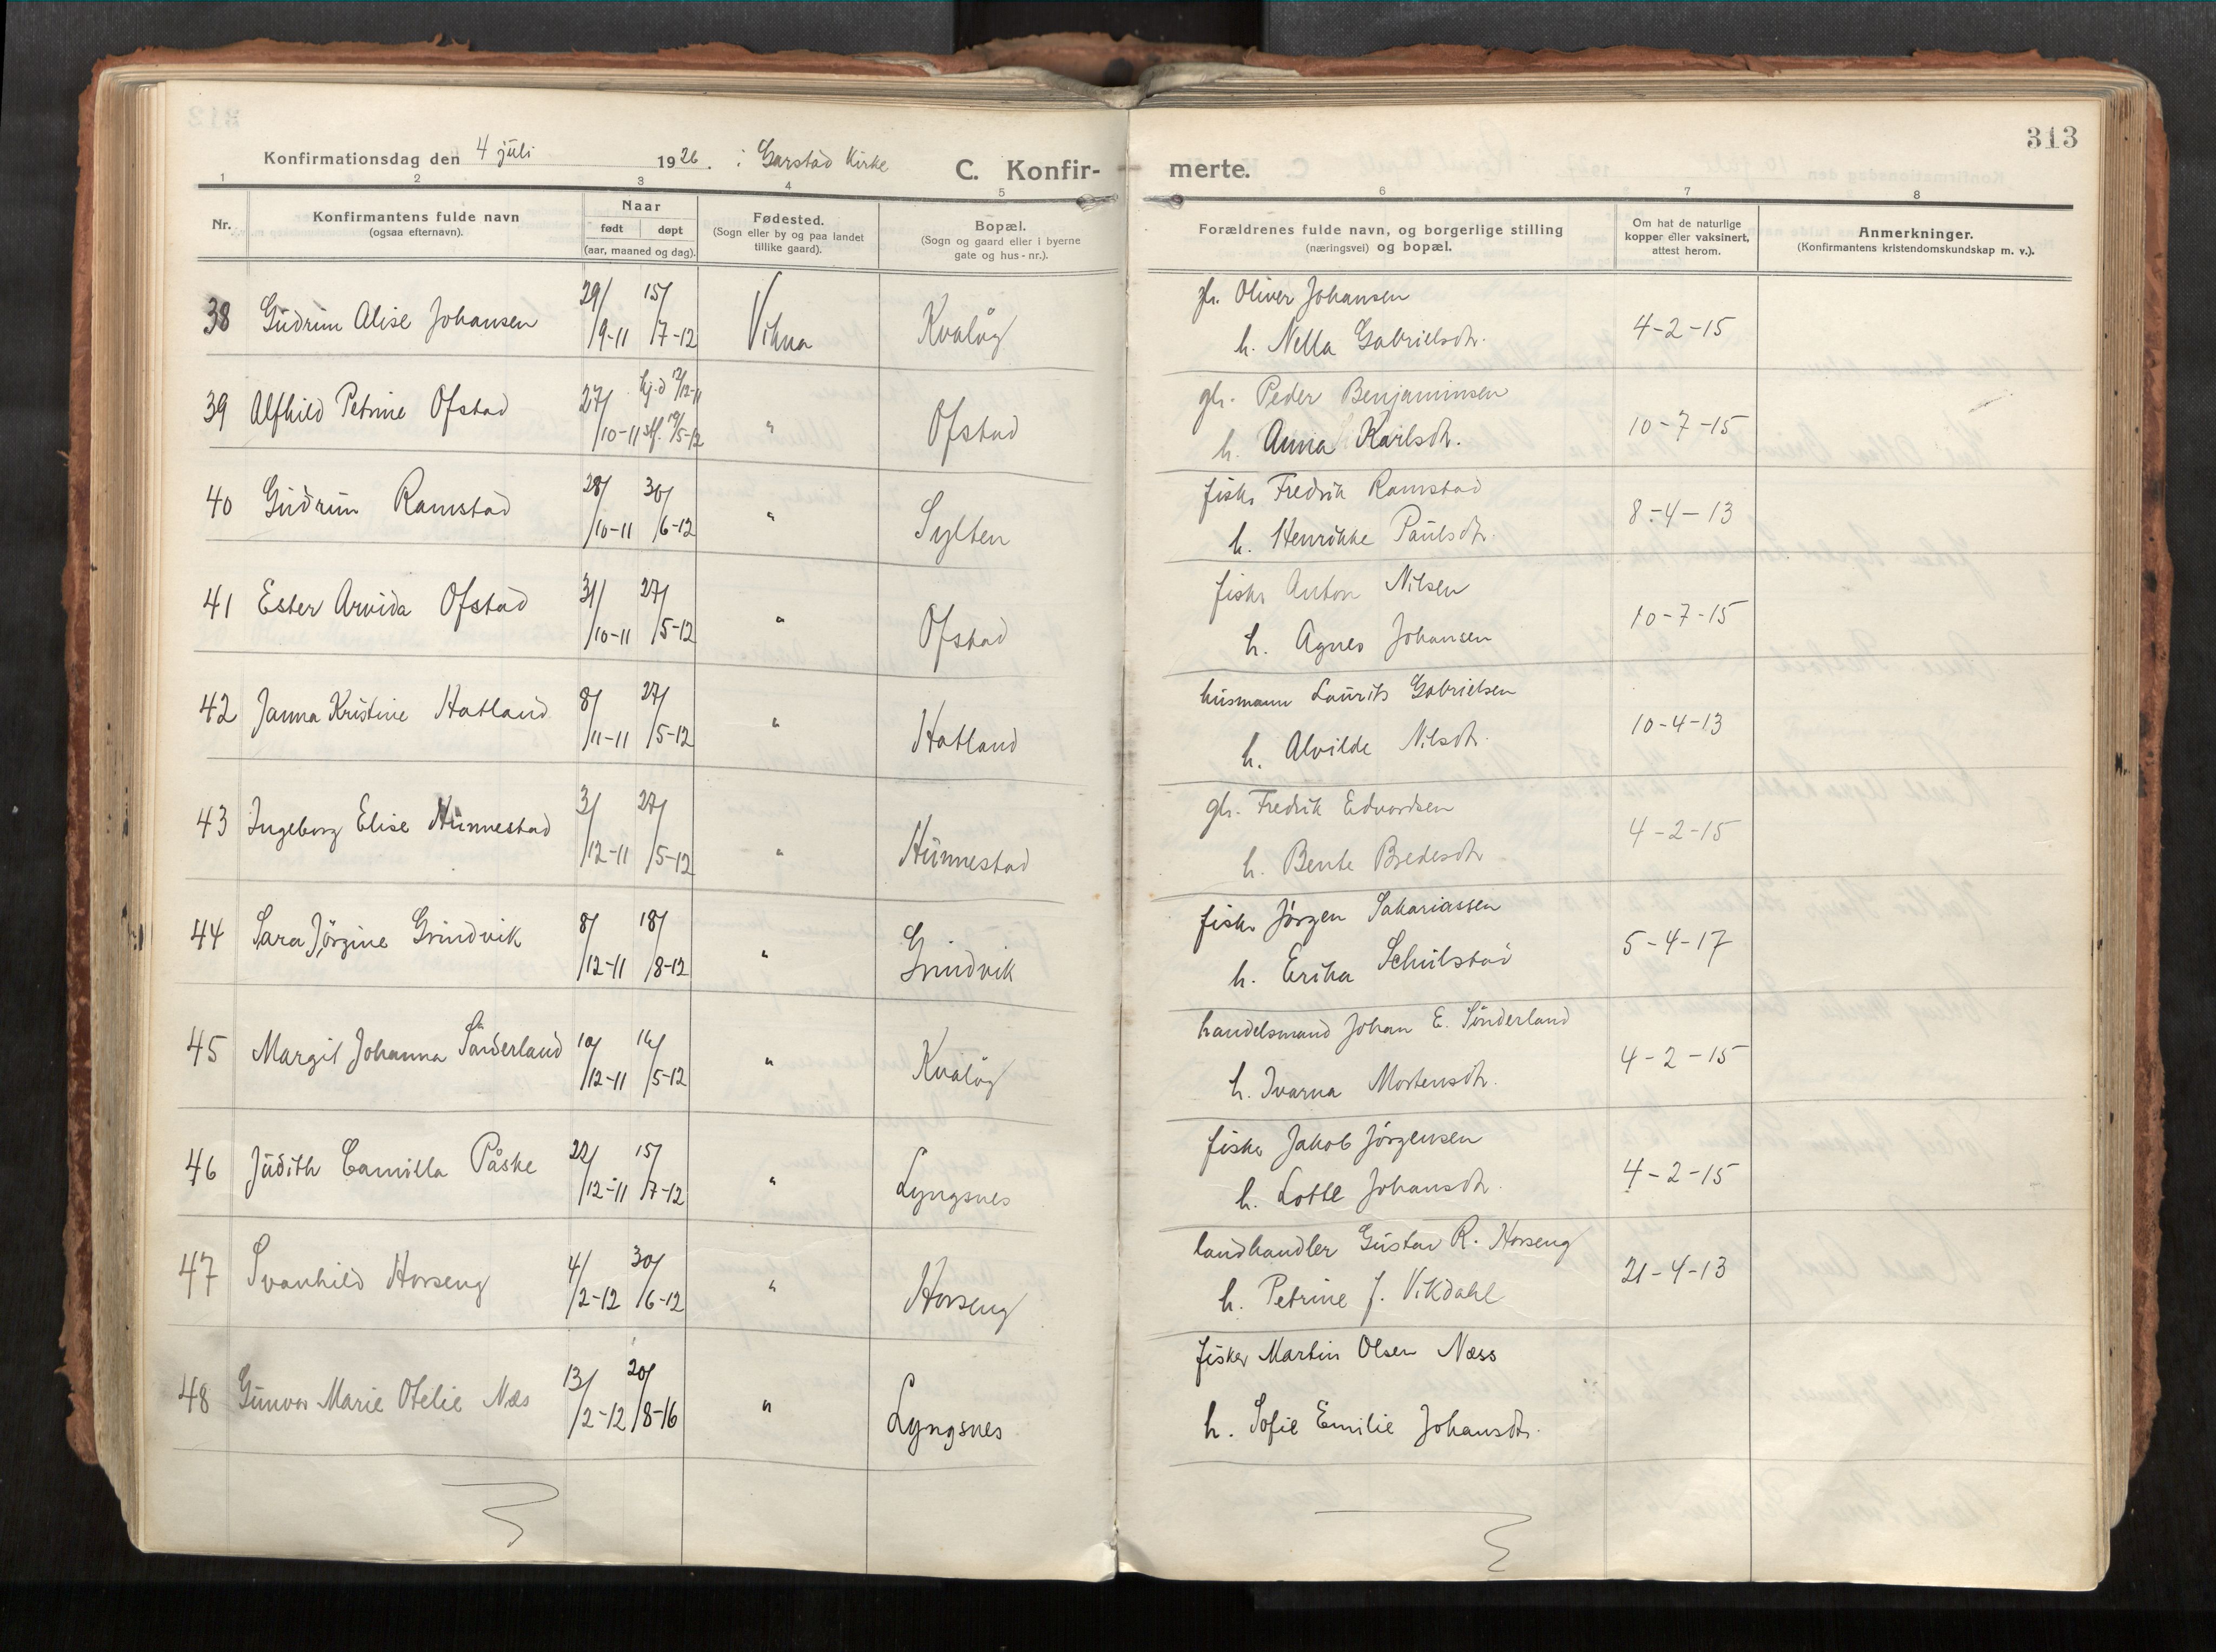 313
Konfirmationsdag den 4 juli 1926. i Garstad Kirke C. Konfir- merte.
1 2 3 4 5 6 7 8
Nr. Konfirmantens fulde navn (ogsaa efternavn). Naar født døpt (aar, maaned og dag). Fødested. (Sogn eller by og paa landet tillike gaard). Bopæl. (Sogn og gaard eller i byerne gate og hus-nr.). Forældrenes fulde navn, og borgerlige stilling (næringsvei) og bopæl. Om hat de naturlige kopper eller vaksinert, attest herom. Anmerkninger. (Konfirmantens kristendomskundskap m. v.).
38 Gudrun Alise Johansen 29/9-11 15/7-12 Vikna Kvaløy Oliver Johansen 4-2-15
h. Nella Gabrielsdtr.
39 Alfhild Petrine Ofstad 27/10-11 hj.d 12/12-11 stf. 19/5-12 " Ofstad gbr. Peder Benjaminsen 10-7-15
h. Anna Karlsdtr.
40 Gudrun Ramstad 28/10-11 30/6-12 " Sylten fisker Fredrik Ramstad 8-4-13
h. Henrikke Paulsdtr.
41 Ester Arvida Ofstad 31/10-11 27/5-12 " Ofstad fisker Anton Nilsen 10-7-15
h. Agnes Johansen
42 Janna Kristine Hatland 8/11-11 27/5-12 " Hatland husmann Laurits Gabrielsen 10-4-13
h. Alvilde Nilsdtr.
43 Ingeborg Elise Hunnestad 3/12-11 27/5-12 " Hunnestad gbr. Fredrik Edvardsen 4-2-15
h. Bente Bredesdtr
44 Sara Jørgine Grindvik 8/12-11 18/8-12 " Grindvik fisker Jørgen Sakariassen 5-4-17
h. Erika Schulstad
45 Margit Johanna Sønderland 10/12-11 16/5-12 " Kvaløy handelsmand Johan E. Sønderland 4-2-15
h. Ivarna Mortensdtr.
46 Judith Camilla Påske 22/12-11 15/7-12 " Lyngsnes fisker Jakob Jørgensen 4-2-15
h. Lotte Johansdtr.
47 Svanhild Horseng 4/2-12 30/6-12 " Horseng landhandler Gustav R. Horseng 21-4-13
h. Petrine J. Vikdahl
48 Gunvor Marie Otelie Næs 13/2-12 20/8-16 " Lyngsnes fisker Martin Olsen Næss
h. Sofie Emilie Johansdtr.